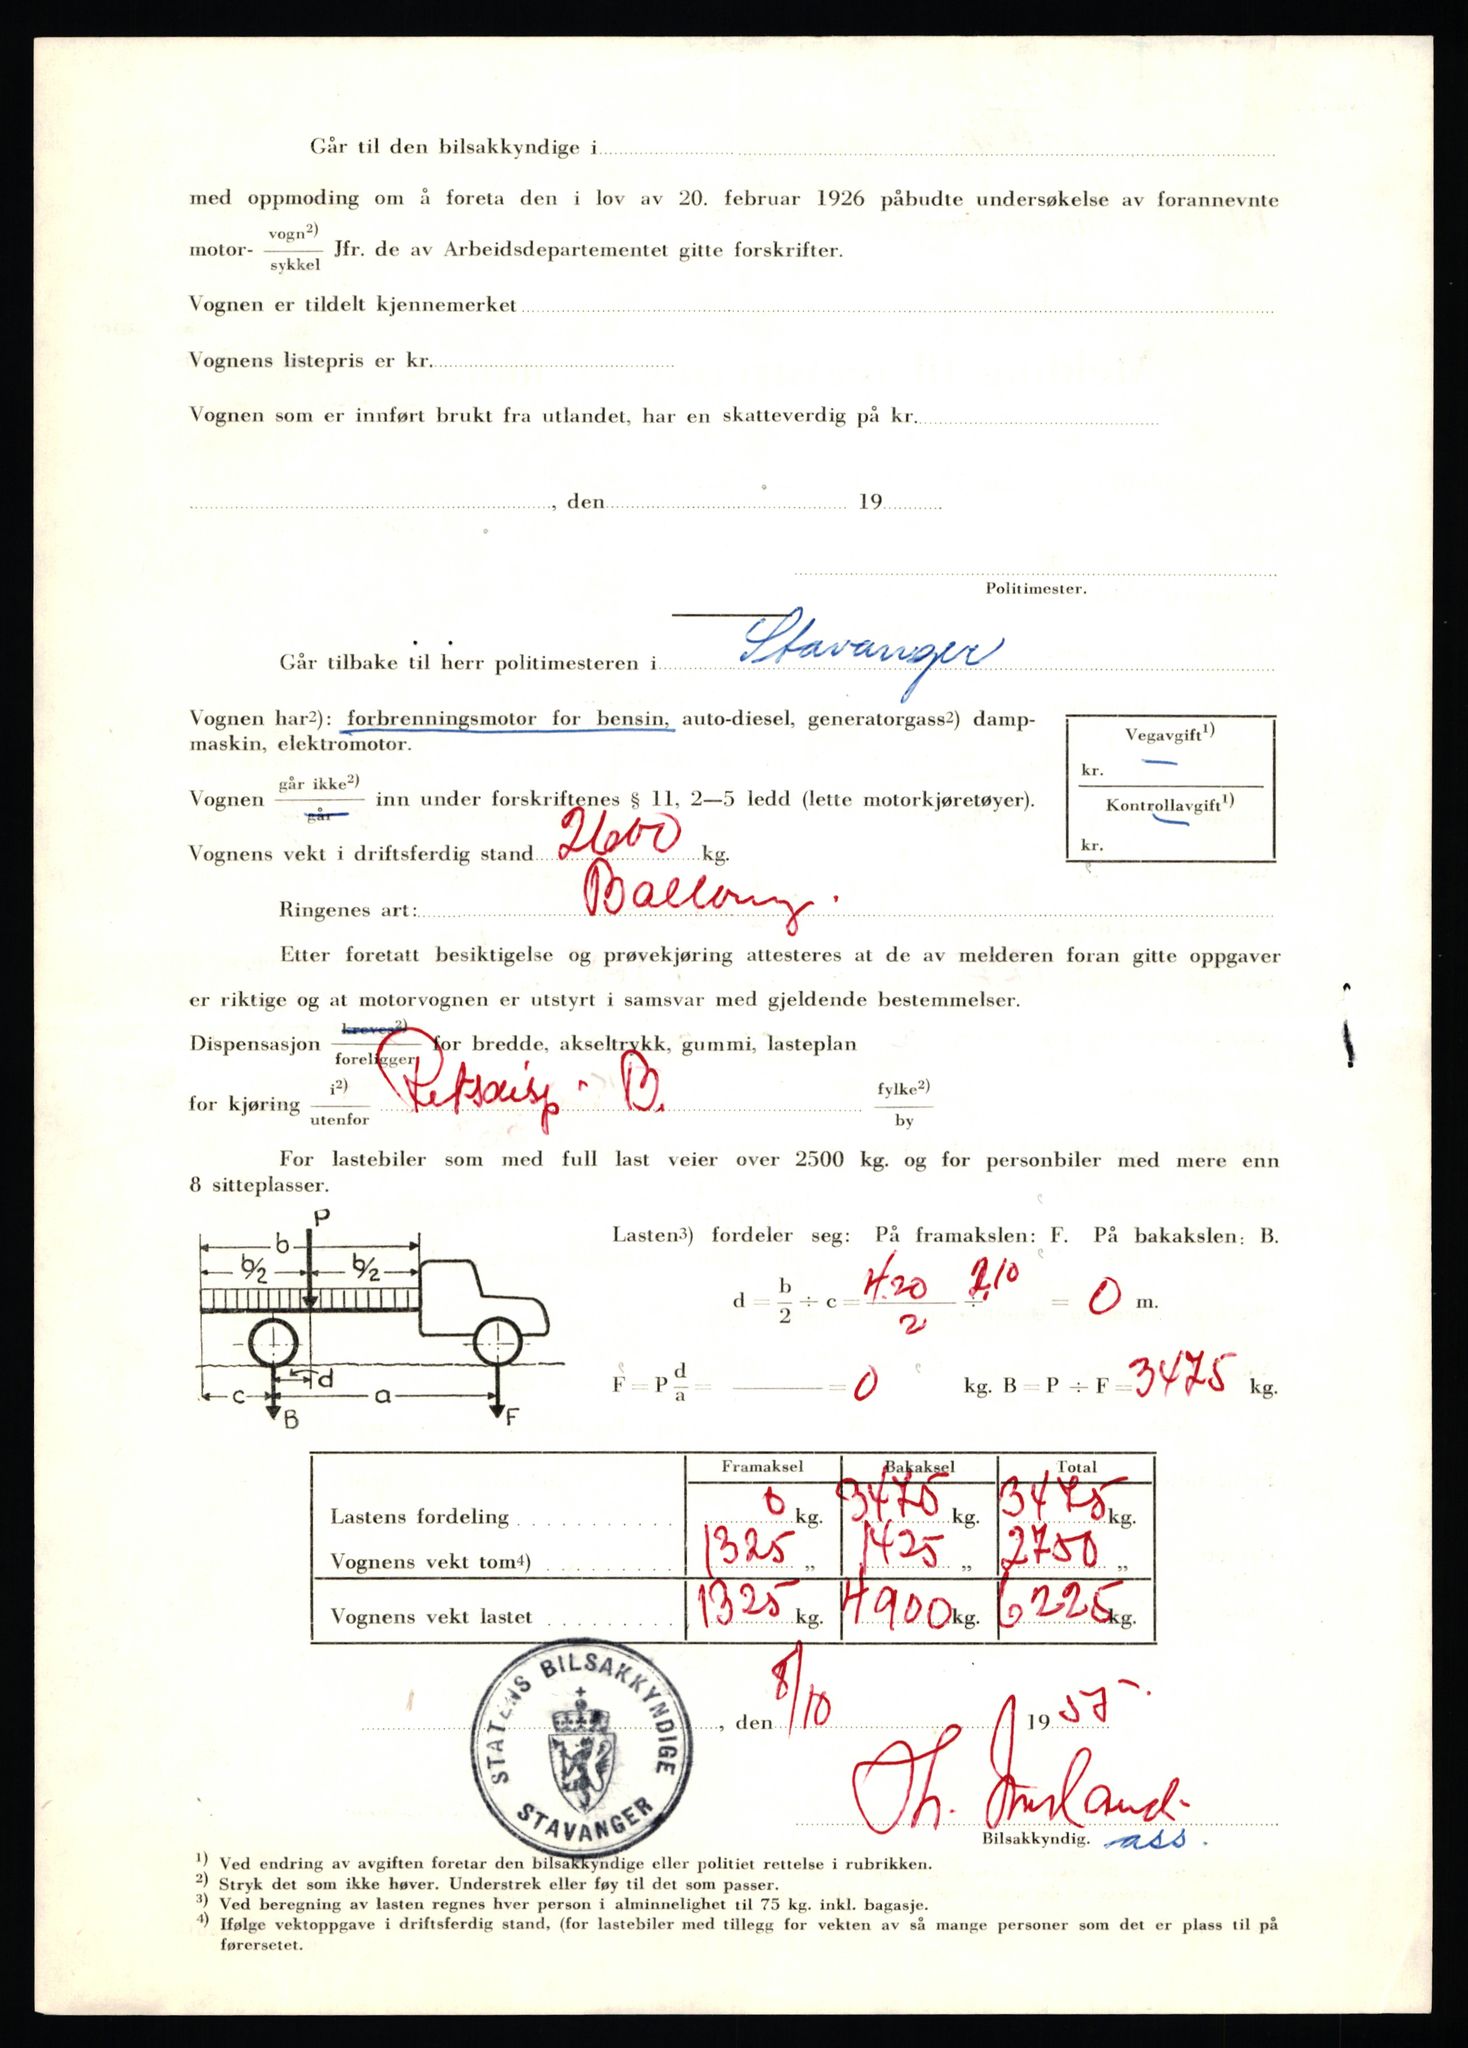 Går til den bilsakkyndige i
med oppmoding om å foreta den i lov av 20. februar 1926 påbudte undersøkelse av forannevnte
motor- vogn2) / sykkel Jfr. de av Arbeidsdepartementet gitte forskrifter.
Vognen er tildelt kjennemerket
Vognens listepris er kr.
Vognen som er innført brukt fra utlandet, har en skatteverdig på kr.
, den 19
Politimester.
Går tilbake til herr politimesteren i Stavanger
Vognen har2): forbrenningsmotor for bensin, auto-diesel, generatorgass2) damp-
maskin, elektromotor.
Vegavgift1)
kr. —
Kontrollavgift1)
kr. —
Vognen går ikke2) / går inn under forskriftenes § 11, 2—5 ledd (lette motorkjøretøyer).
Vognens vekt i driftsferdig stand 2600 kg.
Ringenes art: Ballong.
Etter foretatt besiktigelse og prøvekjøring attesteres at de av melderen foran gitte oppgaver
er riktige og at motorvognen er utstyrt i samsvar med gjeldende bestemmelser.
Dispensasjon kreves2) / foreligger for bredde, akseltrykk, gummi, lasteplan
for kjøring i2) / utenfor B. fylke2) / by
For lastebiler som med full last veier over 2500 kg. og for personbiler med mere enn
8 sitteplasser.
P
b
b/2 b/2
d
c a
B F
Lasten3) fordeler seg: På framakslen: F. På bakakslen: B.
d = b/2 ÷ c = 4.20/2 ÷ 2.10 = 0 m.
F = P d/a = — = 0 kg. B = P ÷ F = 3475 kg.
Framaksel Bakaksel Total
Lastens fordeling 0 kg. 3475 kg. 3475 kg.
Vognens vekt tom4) 1325 „ 1425 „ 2750 „
Vognens vekt lastet 1325 kg. 4900 kg. 6225 kg.
STATENS BILSAKKYNDIGE
STAVANGER
, den 8/10 1957
Th.
Bilsakkyndig. ass.
1) Ved endring av avgiften foretar den bilsakkyndige eller politiet rettelse i rubrikken.
2) Stryk det som ikke høver. Understrek eller føy til det som passer.
3) Ved beregning av lasten regnes hver person i alminnelighet til 75 kg. inkl. bagasje.
4) Ifølge vektoppgave i driftsferdig stand, (for lastebiler med tillegg for vekten av så mange personer som det er plass til på
førersetet.